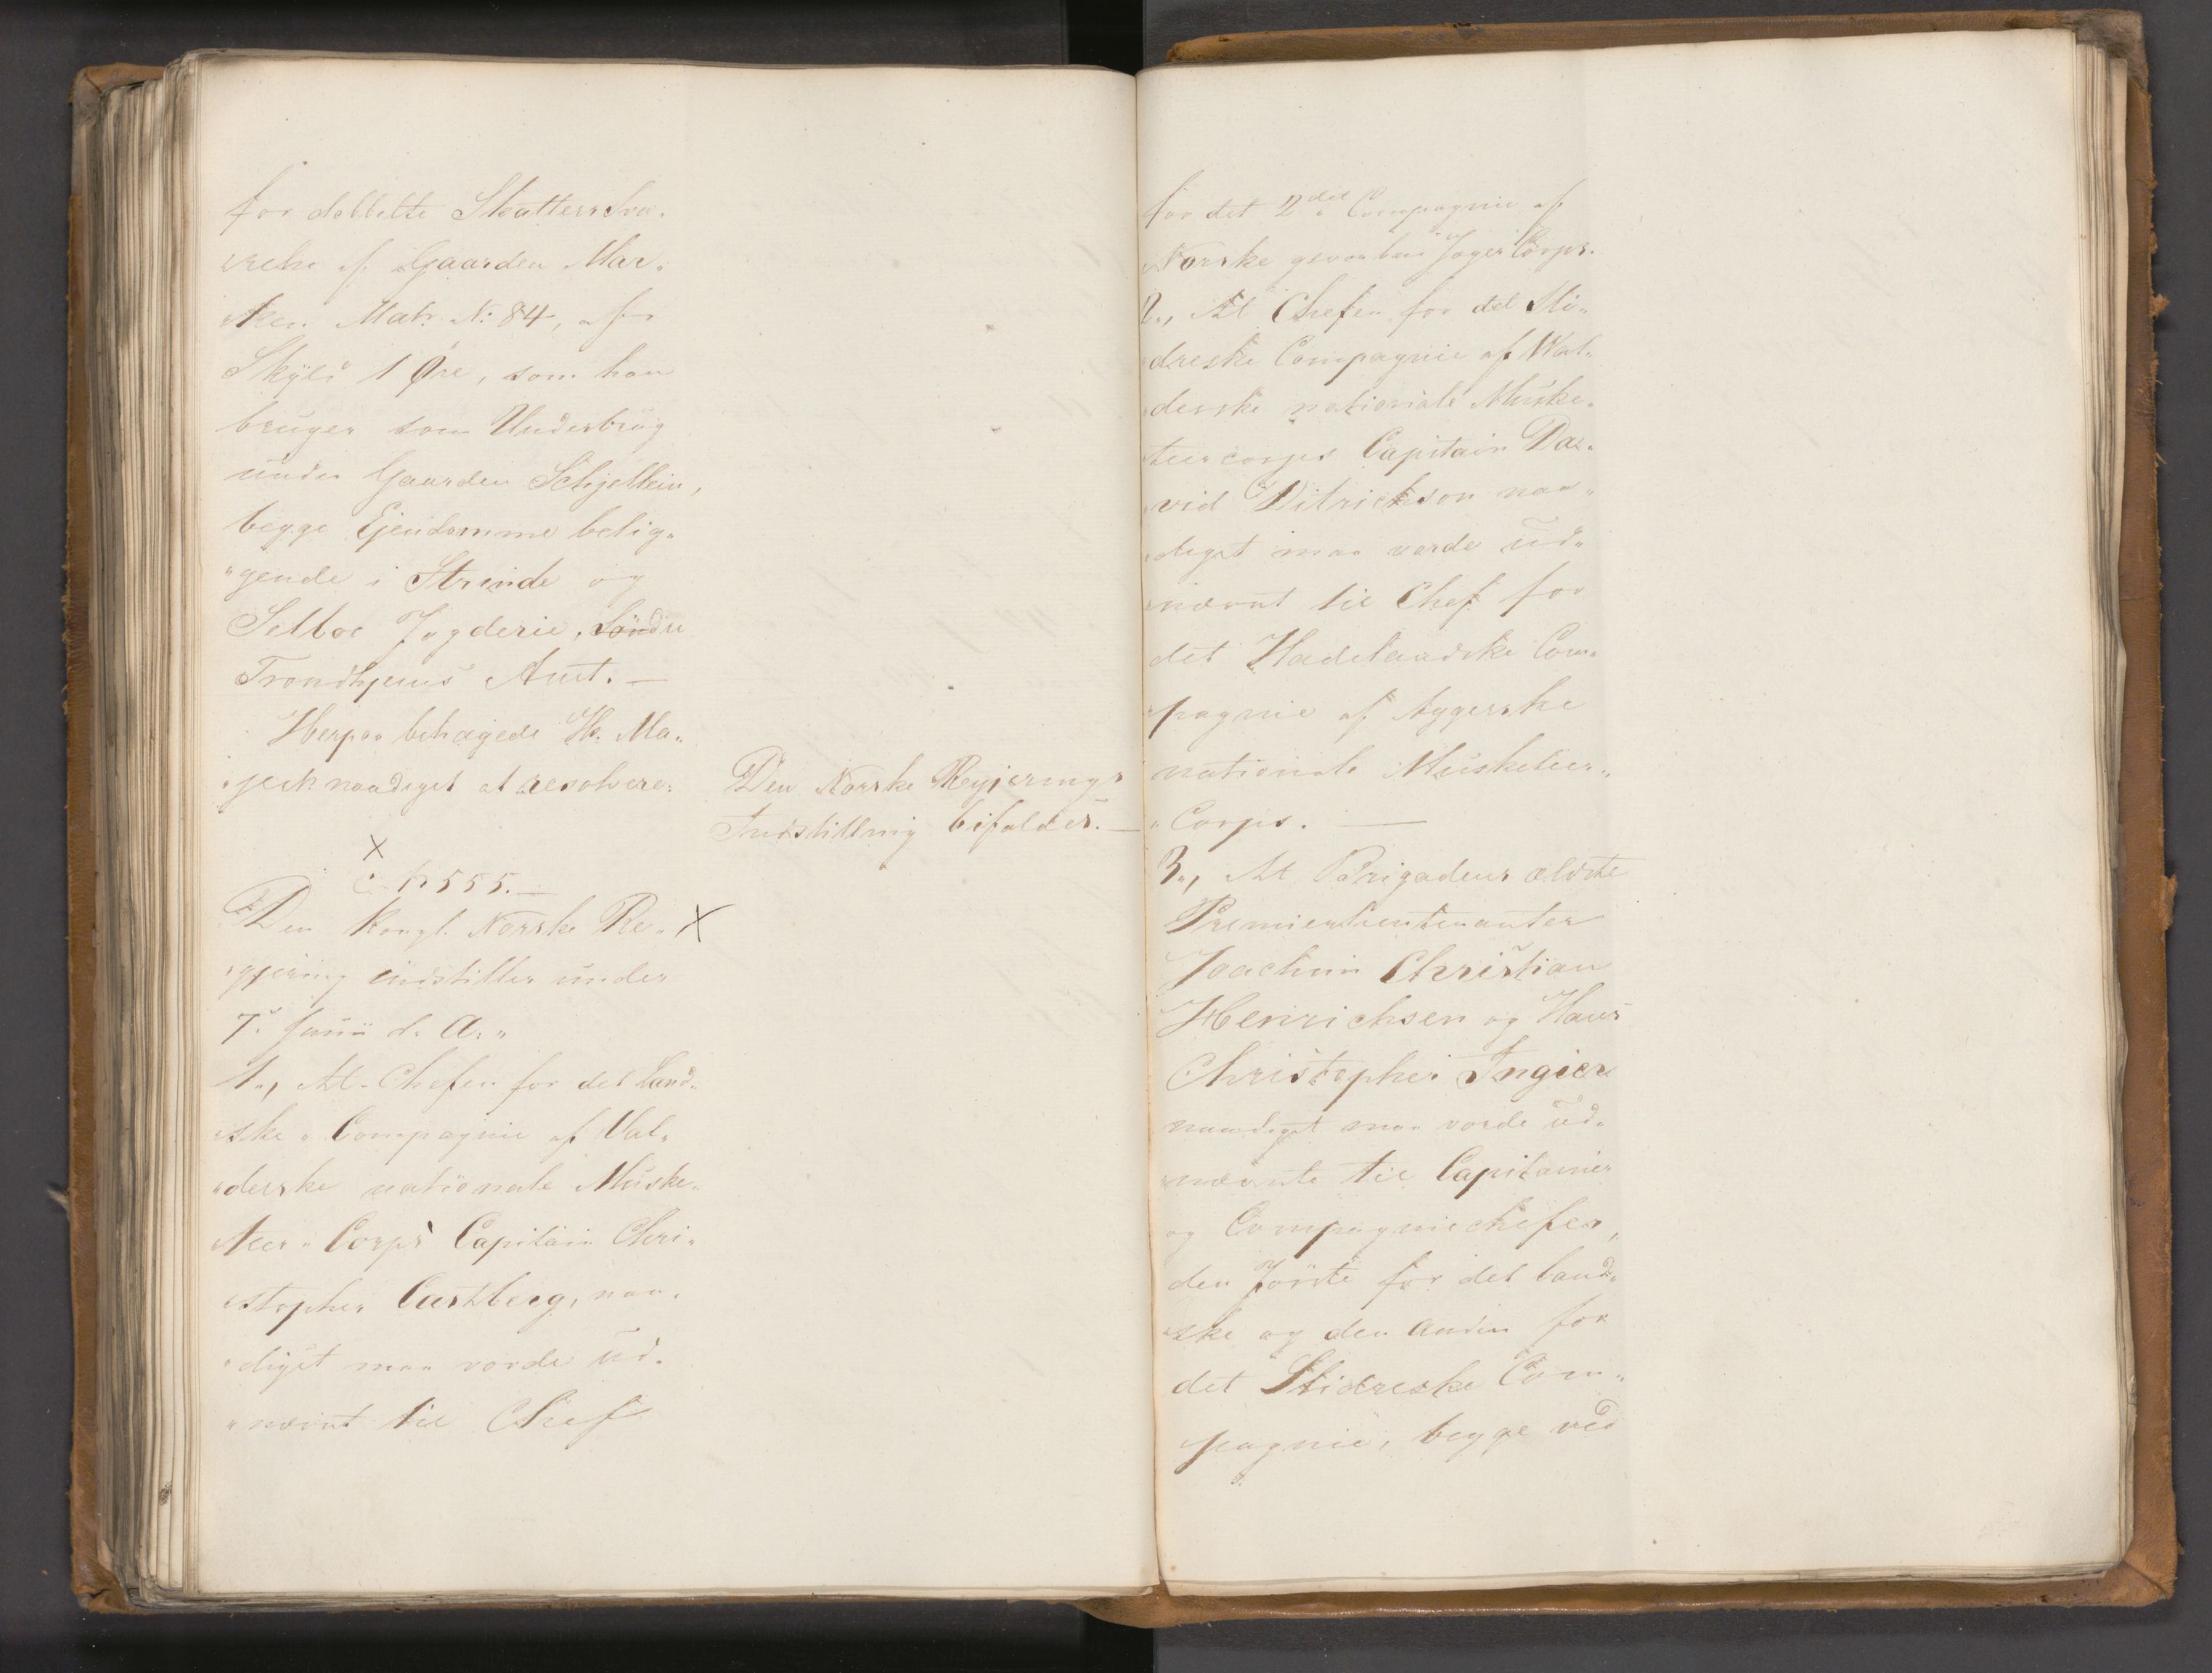 for dobbelte Skatters Sva„
„relse af Gaarden Mar„
„ken Matr. N: 84, af
Skyld 1 Øre, som han
bruger som Underbrug
under Gaarden Schjellein,
begge Ejendomme belig„
„gende i Strinde og
Selboe Fogderie, Söndre
Trondhjems Amt. —
Herpaa behagede Hs. Ma„
„jestt naadigst at resolvere:
Den Norske Regjerings
Indstilling bifaldes. —
X
555. —
Den Kongl. Norske Re„ X
„gjering indstiller under
7. Junii d. A. „
1., At Chefen for det Land„
„ske „ Compagnie af Val„
„derske nationale Muske„
„teer „ Corps Capitain Chri„
„stopher Carlberg, naa„
„digst maa vorde ud„
„nævnt til Chef
for det 2det Compagnie af
Norske gevorben Jæger Corps.
2., At Chefen for det Sli„
„dreske Compagnie af Val„
„derske nationale Muske„
„teer corps Capitain Da„
„vid Ditrichson naa„
„digst maa vorde ud„
„nævnt til Chef for
det Hadelandske Com„
„pagnie af Aggerske
nationale Musketeer„
„Corps. —
3., At Brigadens ældste
Premierlieutenanter
Joachim Christian
Henrichsen og Hans
Christopher Ingier
naadigst maa vorde ud„
„nævnte til Capitainer
og Compagniechefer,
den Förste for det Land„
„ske og den Anden for
det Slidreske Com„
pagnie, begge ved